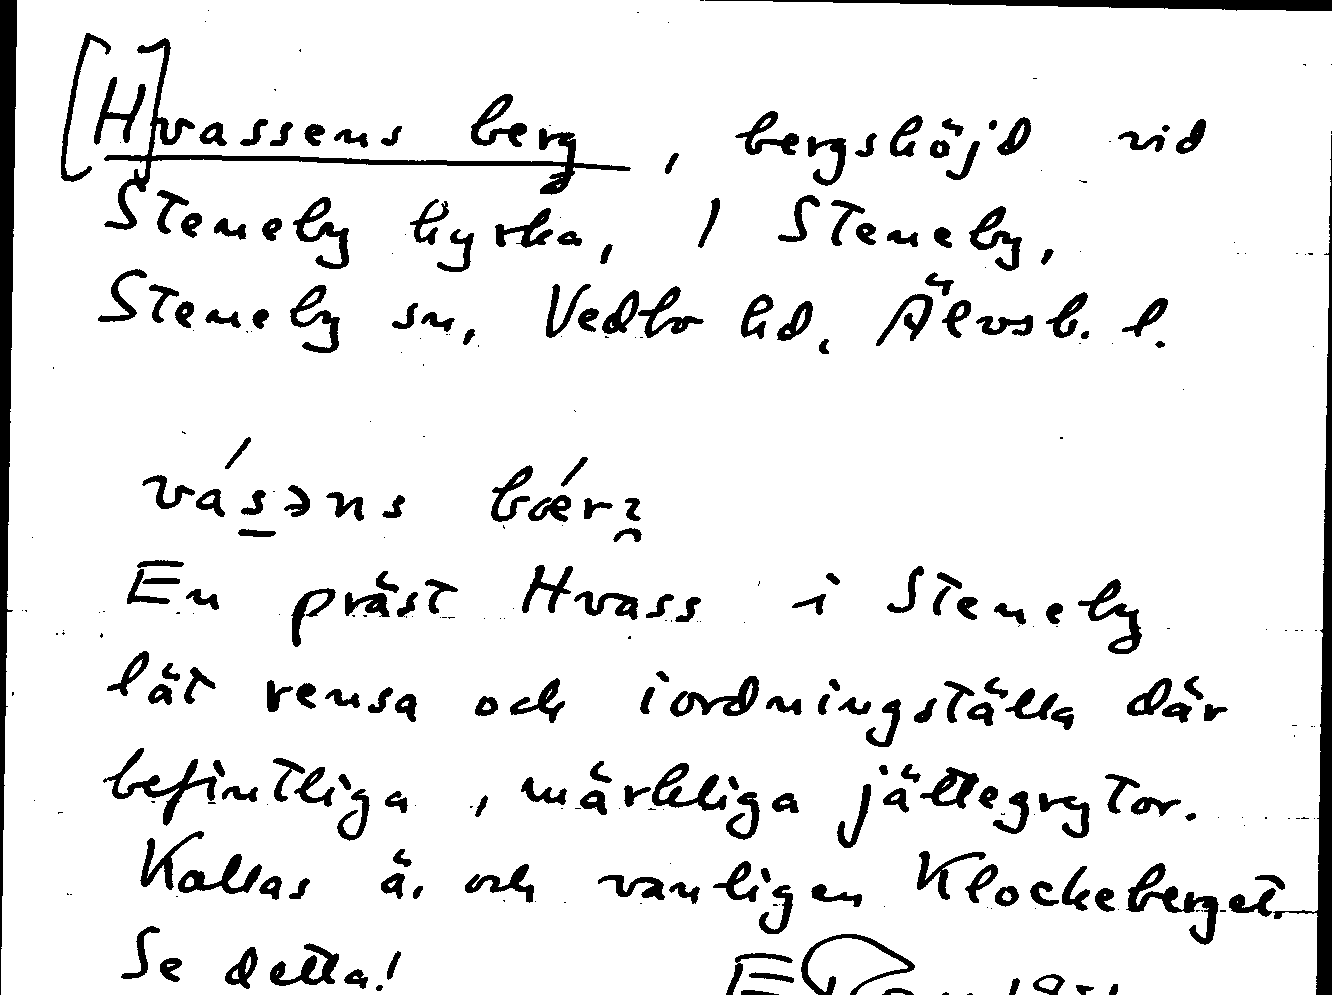 [H]vassens berg, bergshöjd vid
Steneby kyrka, / Steneby,
Steneby sn, Vedbo hd, Älvsb. l.
vásəns bǿrʒ
En präst Hvass i Steneby
lät rensa och iordningställa där
befintliga, märkliga jättegrytor.
Kallas ä. och vanligen Klockeberget.
Se detta!